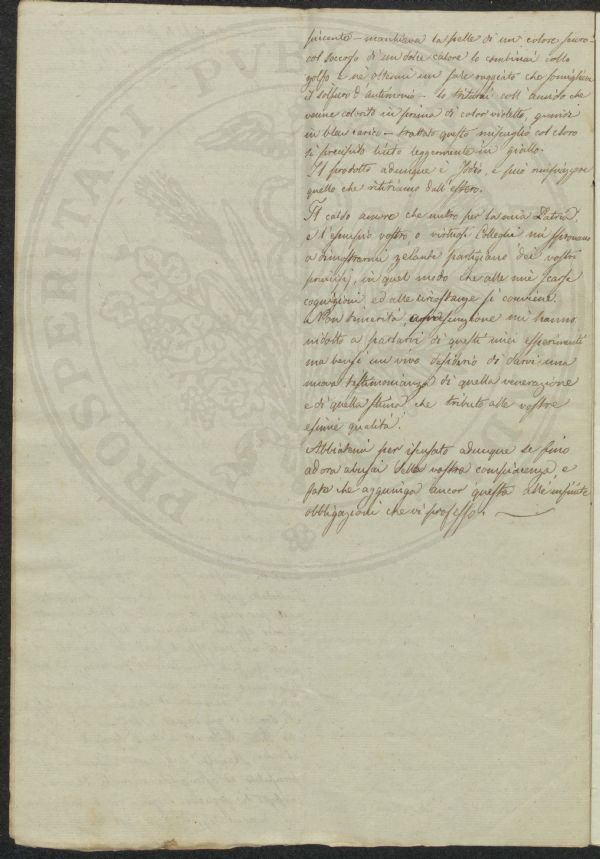 piccante – macchiava la pelle di un colore scuro –
col soccorso di un dolce calore lo combinai collo
zolfo e ne ottenni un che somigliava
il solfuro d'antimonio – lo triturai coll'amido che
venne colorito in prima di color violetto, quindi
in bleu carico – trattato questo miscuglio col cloro
si precipitò tinto leggermente in giallo.
Il prodotto adunque è Jodio, e può rimpiazzare
quello che ritiriamo dall'estero.
Il caldo amore che nutro per la mia Patria
e l'esempio vostro o virtuosi Colleghi mi spronano
a dimostrarmi zelante partigiano dei vostri
principj, in quel modo che alle mie scarse
cognizioni, ed alle circostanze si conviene.
Non temerità, o presunzione mi hanno
indotto a parlarvi di questi miei esperimenti
ma bensì un vivo desiderio di darvi una
nuova testimonianza di quella venerazione
e di quella stima che tributo alle vostre
esimie qualità.
Abbiatemi per iscusato adunque se fino
ad ora abusai della vostra compiacenza, e
fate che aggiunga ancor questa alle infinite
obbligazioni che vi professo.
PROSPERITATI PUB